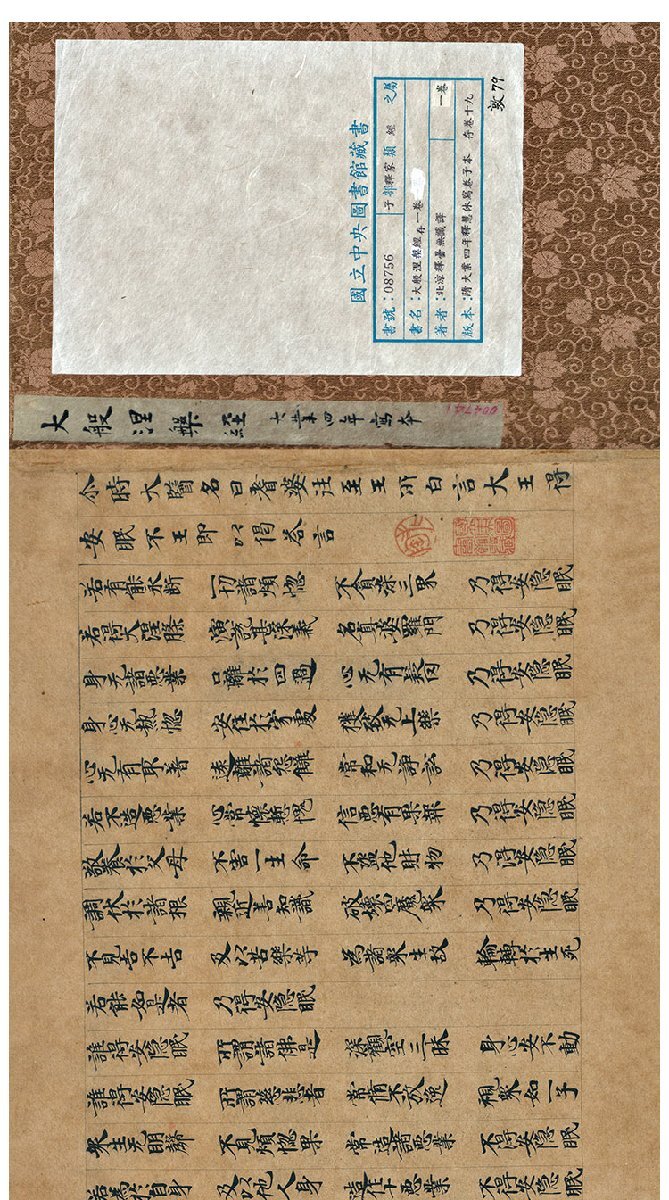 敦79
國立中央圖書館藏書
書號:08756 子部 釋家類 經 之屬
書名:大般涅槃經存一卷 一卷
著者:北涼釋曇無讖譯
版本:隋大業四年釋慧休寫卷子本 存卷十九
大般涅槃經 大業四年寫本
尒時大醫名曰耆婆往至王所白言大王得
安眠不王即以偈荅言
若有能永断 一切諸煩惱 不貪染三界 乃得安隱眠
若得大涅槃 演說甚深義 名真婆羅門 乃得安隱眠
身无諸惡業 口離於四過 心无有疑网 乃得安隱眠
身心无熱惱 安住於寂處 獲致无上樂 乃得安隱眠
心无有取著 遠離諸怨讎 常和无諍訟 乃得安隱眠
若不造惡業 心常懷慙愧 信惡有果報 乃得安隱眠
敬養於父母 不害一生命 不盜他財物 乃得安隱眠
調伏於諸根 親近善知識 破壞四魔眾 乃得安隱眠
不見吉不吉 及以苦樂等 為諸眾生故 輪轉於生死
若能如是者 乃得安隱眠
誰得安隱眠 所謂諸佛是 深觀空三昧 身心安不動
誰得安隱眠 所謂慈悲者 常脩不放逸 視眾如一子
眾生无明瞑 不見煩惱果 常造諸惡業 不得安隱眠
若為於自身 及以他人身 造作十惡業 不得安隱眠